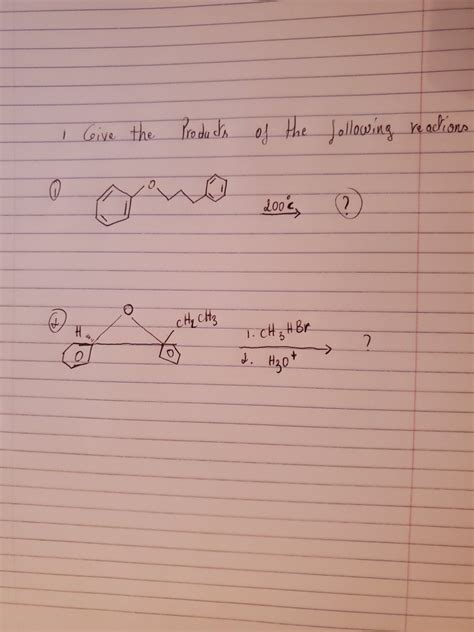 1 Give the Products of the following reactions
① O 200°C ?
② H O CH2CH3 1. CH3HBr ?
2. H3O+